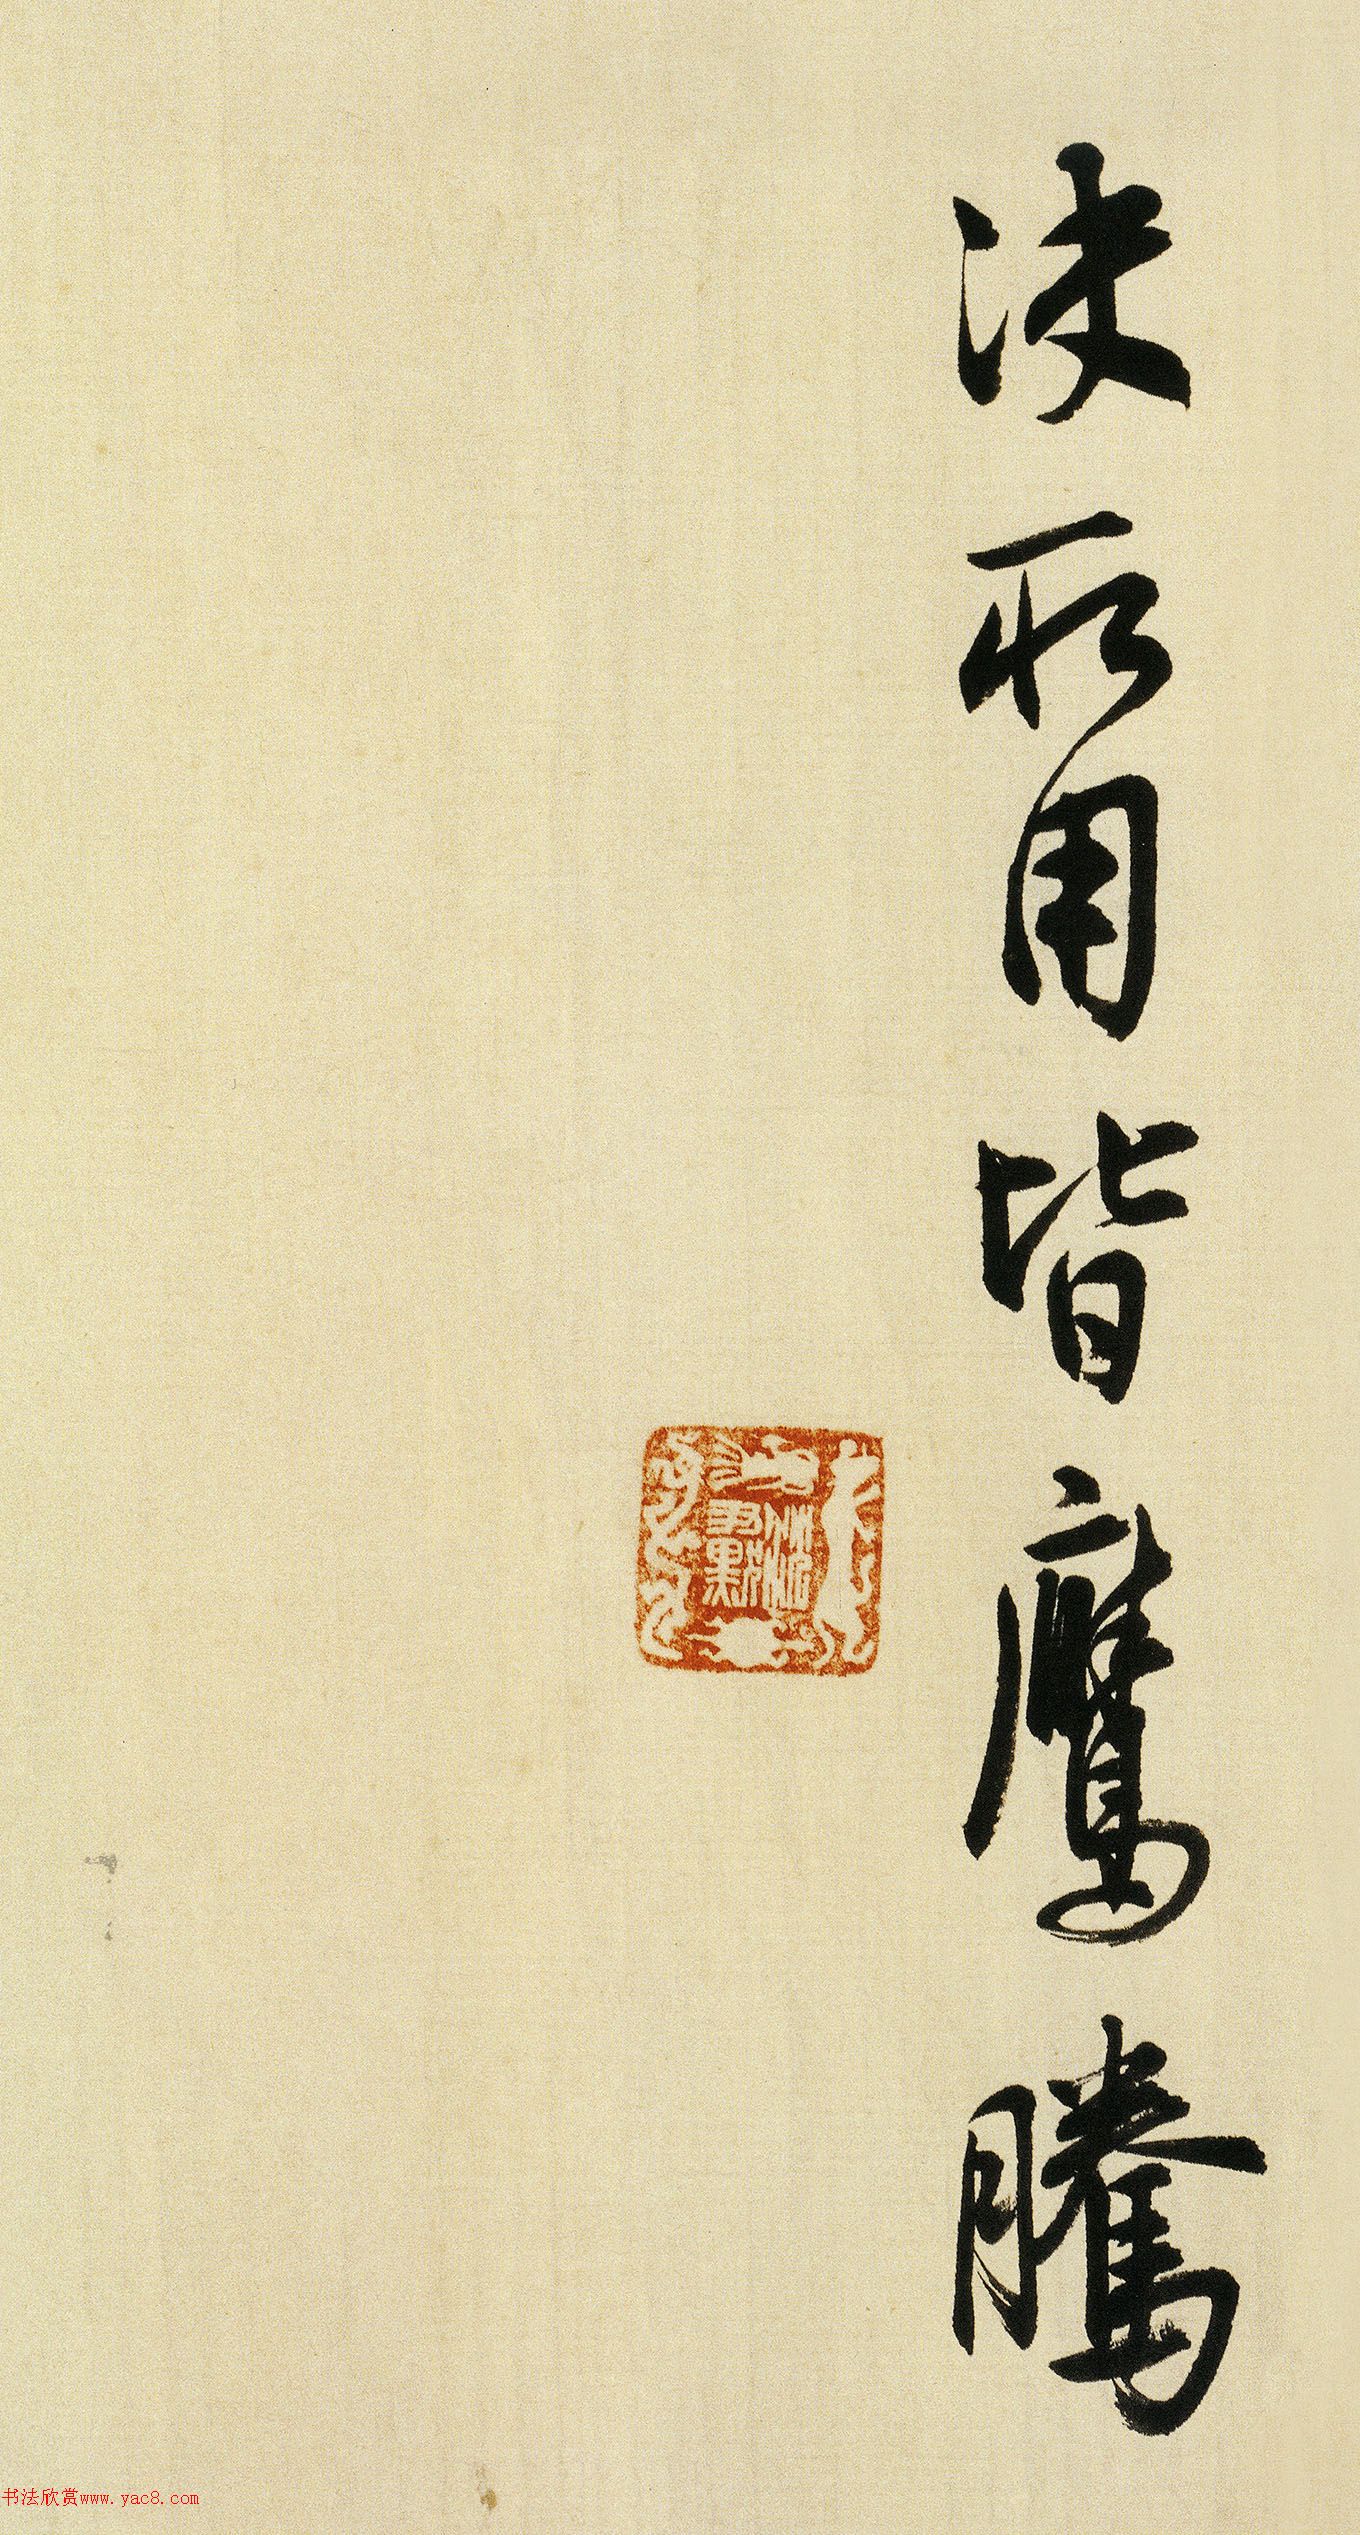 決所用皆鷹騰
书法欣赏www.yac8.com